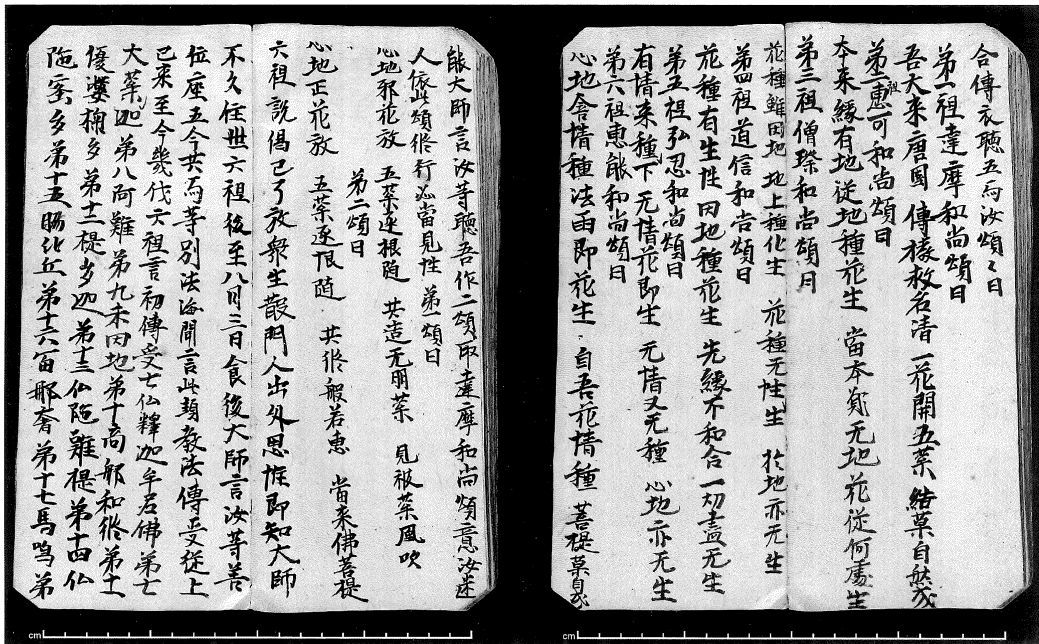 合傳衣聽五与汝頌〻曰
第一祖達摩和尚頌曰
吾大来唐國 傳教救名清 一花開五葉 結菓自然成
第二祖惠可和尚頌曰
本来緣有地 從地種花生 當本願无地 花從何處生
第三祖僧璨和尚頌曰
花種雖因地 地上種化生 花種无性生 於地亦无生
第四祖道信和尚頌曰
花種有生性 因地種花生 先緣不和合 一切盡无生
第五祖弘忍和尚頌曰
有情来種下 无情花即生 无情又无種 心地亦无生
第六祖惠能和尚頌曰
心地含情種 法雨即花生 自吾花情種 菩提菓自成
能大師言汝等聽吾作二頌取達摩和尚頌意汝迷
人依此頌修行必當見性 第一頌曰
心地邪花放 五葉逐根随 共造无明葉 見被葉風吹
第二頌曰
心地正花放 五葉逐恨随 共修般若惠 當来佛菩提
六祖説偈已了放衆生散門人出外思惟即知大師
不久住世六祖後至八月三日食後大師言汝等善
位座五今共与等別法海問言此頓教法傳受從上
已来至今幾代六祖言初傳受七仏釋迦牟尼佛第七
大葉迦第八阿難第九末田地第十商那和修第十一
優婆掬多第十二提多迦第十三仏陁難提第十四仏
陁蜜多第十五脇比丘第十六富那奢第十七馬鳴第